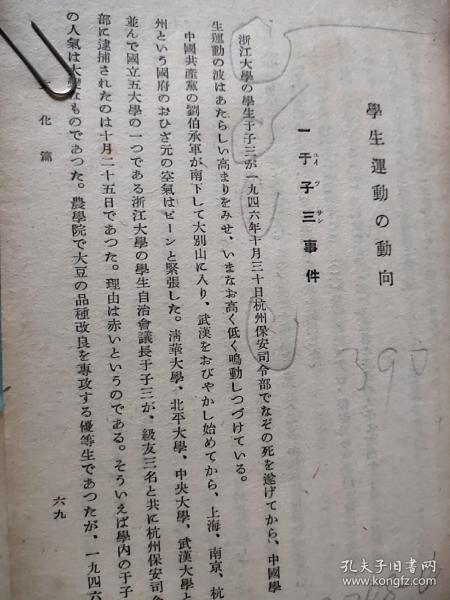 學生運動の動向
一 于子三事件
ユイ ヅ サン
浙江大學の學生于子三が一九四六年十月三十日杭州保安司令部でなぞの死を遂げてから、中國學
生運動の波はあたらしい高まりをみせ、いまなお高く低く鳴動しつづけている。
中國共產黨の劉伯承軍が南下して大別山に入り、武漢をおびやかし始めてから、上海、南京、杭
州という國府のおひざ元の空氣はピーンと緊張した。淸華大學、北平大學、中央大學、武漢大學と
並んで國立五大學の一つである浙江大學の學生自治會議長于子三が、級友三名と共に杭州保安司令
部に逮捕されたのは十月二十五日であつた。理由は赤いというのである。そういえば學內の于子
の人氣は大變なものであつた。農學院で大豆の品種改良を專攻する優等生であつたが、一九四六
化篇
六九
390
孔夫子旧书网